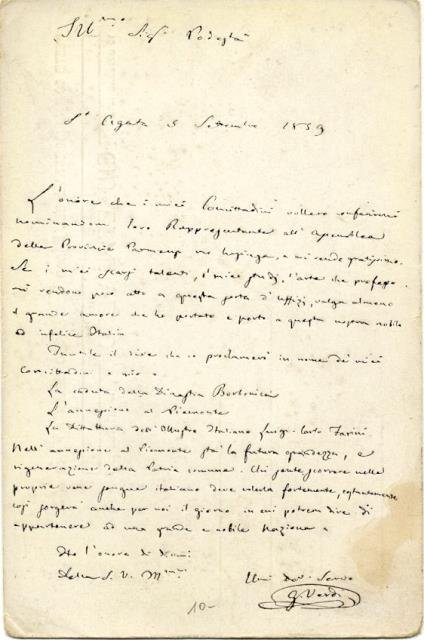 Ill.mo Sig.r Podestà
S.t Agata 5 Settembre 1859
L'onore che i miei Concittadini vollero conferirmi
nominandomi loro Rappresentante all'Assemblea
delle Provincie Parmensi mi lusinga, e mi rende gratissimo.
Se i miei scarsi talenti, i miei studj, l'arte che professo
mi rendono poco atto a questa sorta d'uffizj, valga almeno
il grande amore che ho portato e porto a questa nostra nobile
ed infelice Italia.
Inutile il dire che io proclamerò in nome dei miei
Concittadini e mio:
La caduta della Dinastia Borbonica
L'annessione al Piemonte
La Dittatura dell'Illustre Italiano Luigi Carlo Farini
Nell'annessione al Piemonte sta la futura grandezza, e
rigenerazione della Patria comune. Chi sente scorrere nelle
proprie vene sangue italiano deve volerla fortemente, costantemente
così sorgerà anche per noi il giorno in cui potremo dire di
appartenere ad una grande e nobile Nazione.
Ho l'onore di dirmi
Della S. V. Ill.ma
Umi Dev. Servo
G. Verdi
10-